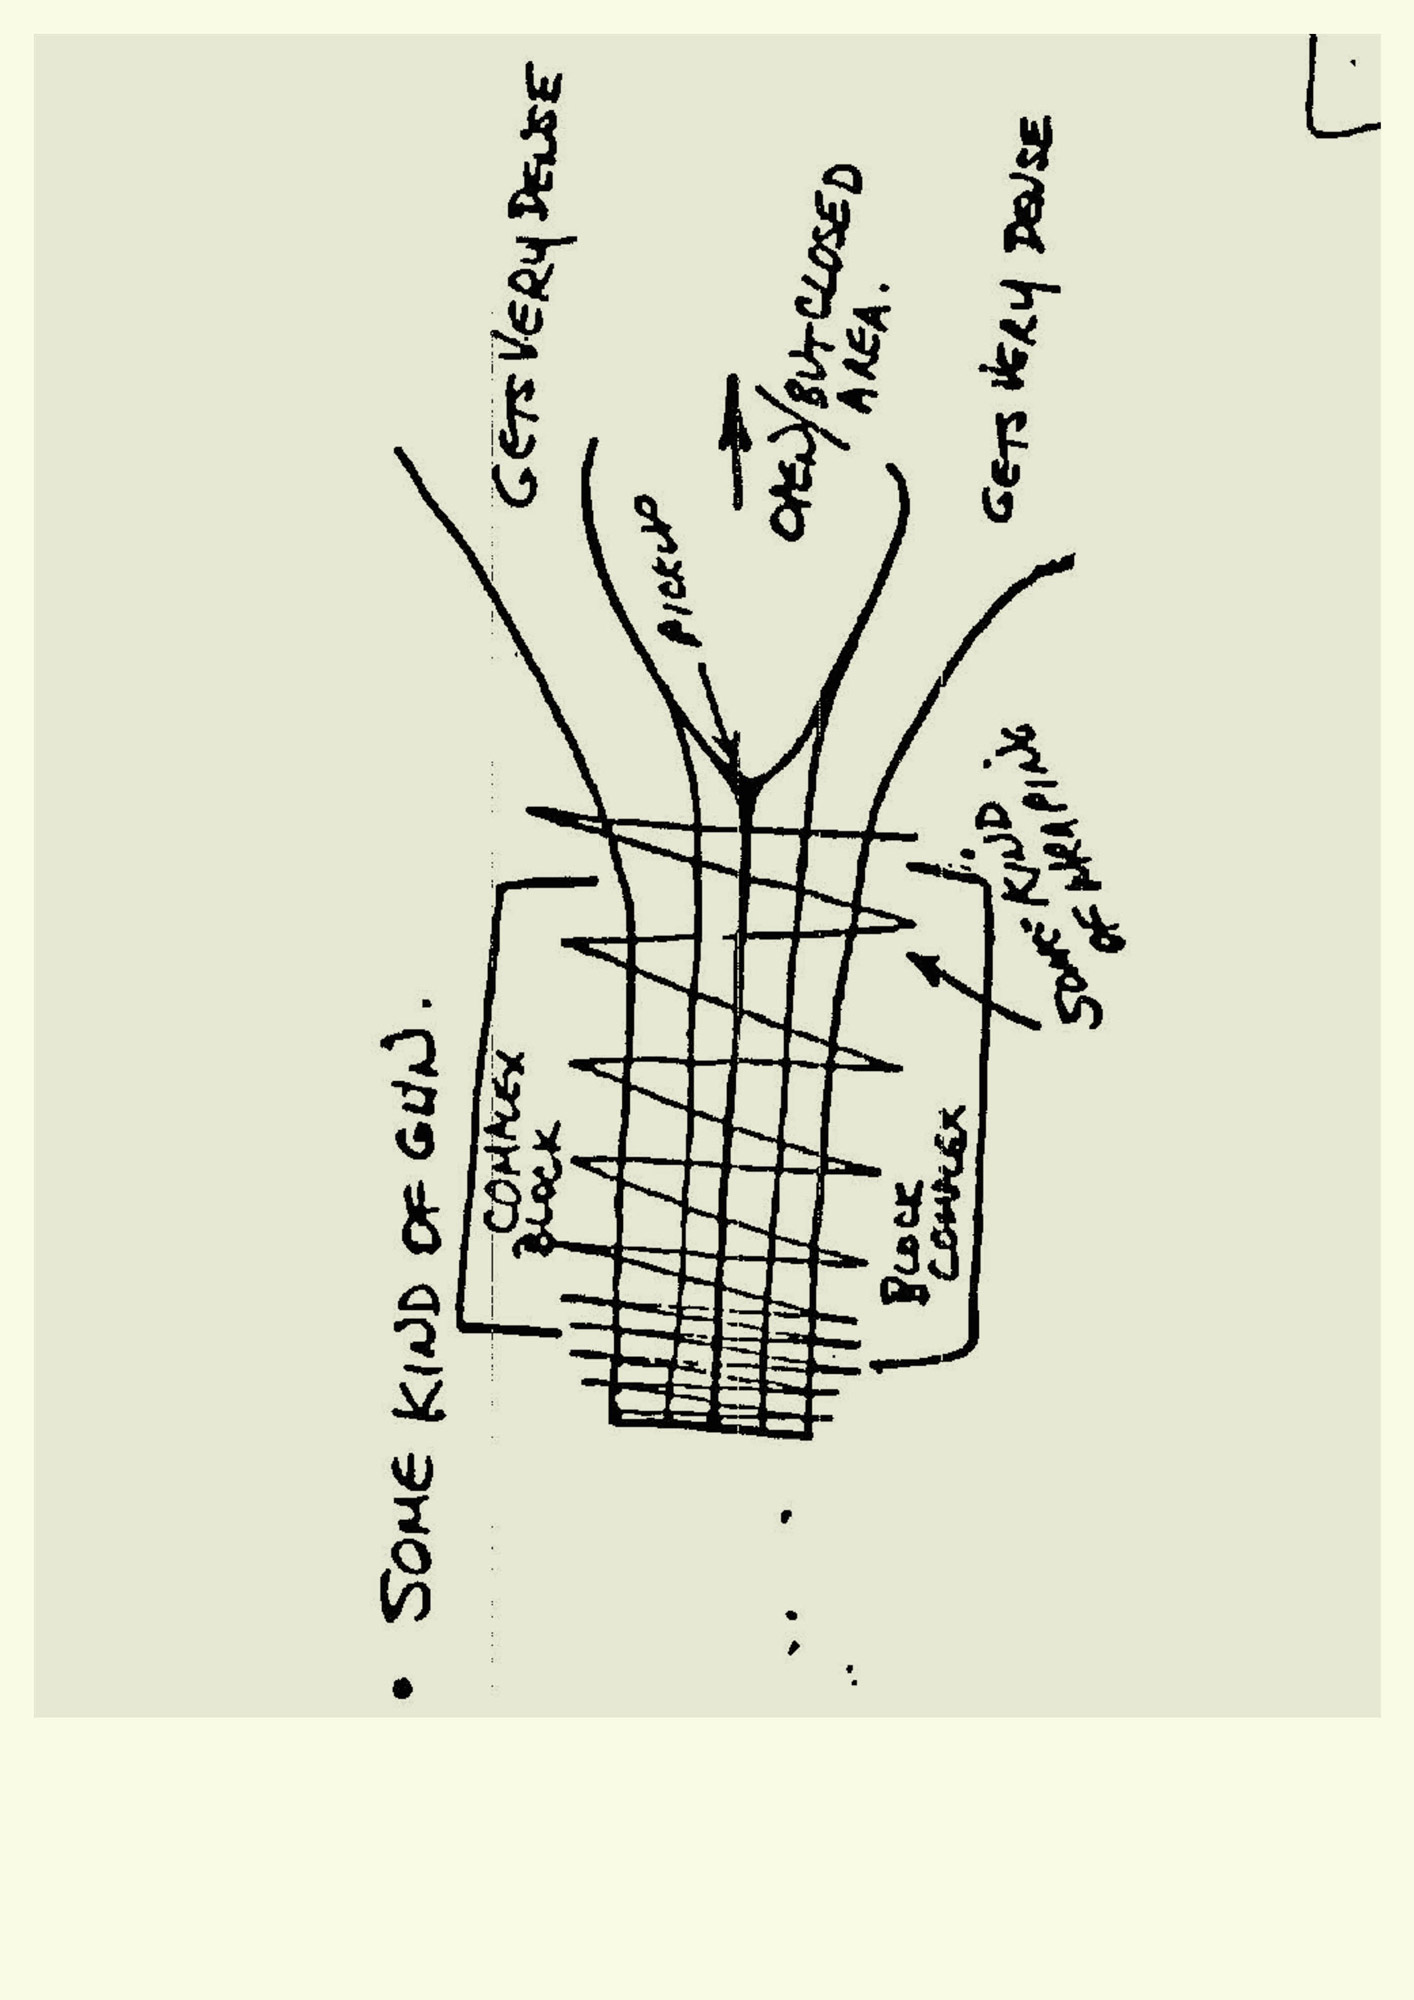 • SOME KIND OF GUN.
COMPLEX
BLOCK
GETS VERY DENSE
PICKUP
OPEN/BUT CLOSED
AREA.
BLOCK
COMPLEX
SOME KIND
OF WRAPING
GETS VERY DENSE